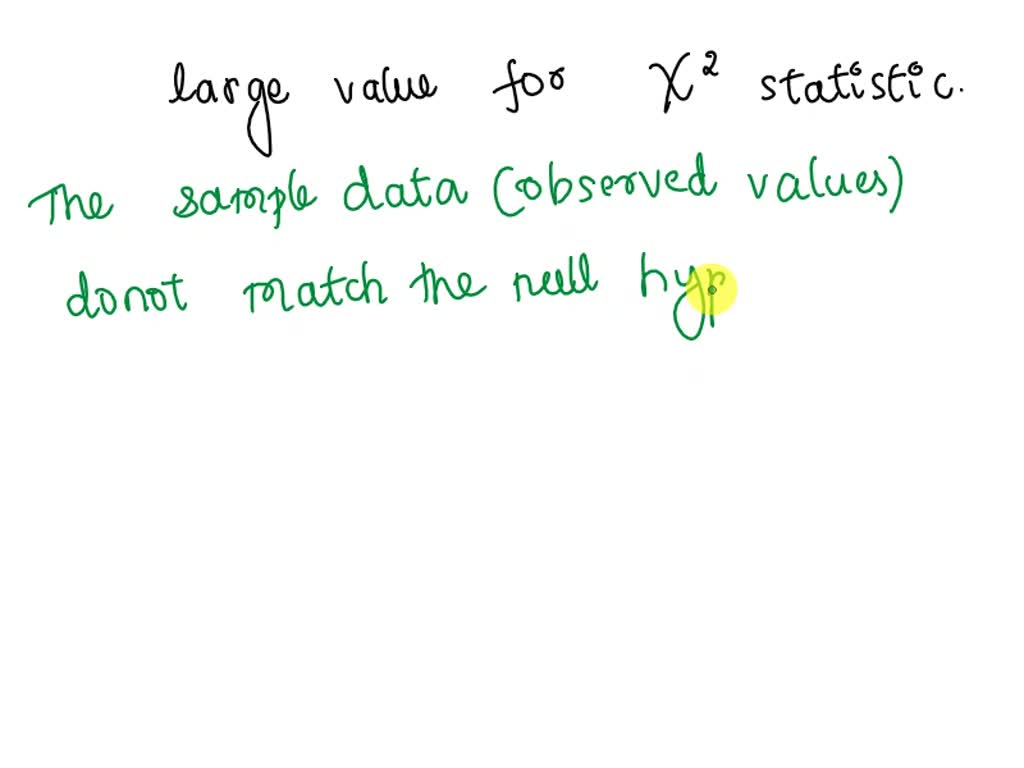 large value for χ² statistic.
The sample data (observed values)
donot match the null hyp